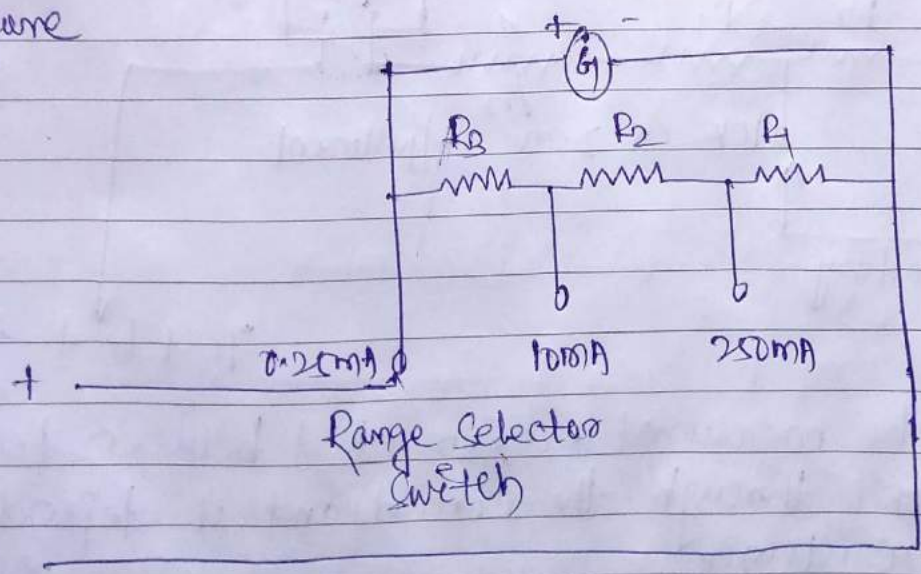 + -
G
R3 R2 R1
0.25mA 10mA 250mA
+
Range Selector
Switch